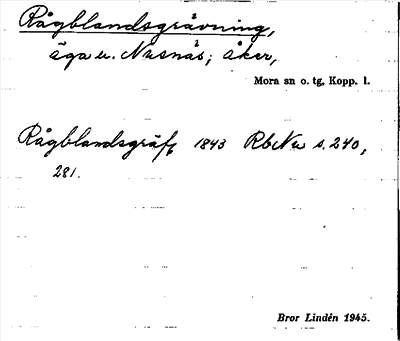 Rågblandsgrävning,
äga u. Nusnäs; åker,
Mora sn o. tg, Kopp. l.
Rågblandsgräfg 1843 RbNu s. 240,
281.
Bror Lindén 1945.